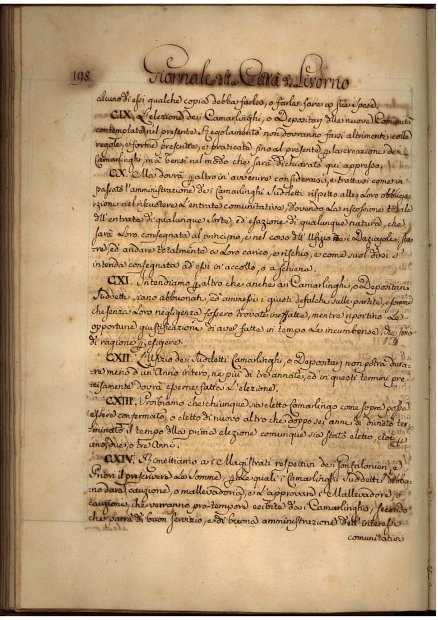 198
Giornale della Città di Livorno
alcuno di essi qualche copia debba farlos, o farlos fare a sue spese.
CIX. L'elezione dei Camarlinghi, o Depositari delle nuove Comunità
contemplate nel presente Regolamento non dovranno farsi altrimenti colle
regole, e forme prescritte, e praticate fino al presente la creazione dei
Camarlinghi, ma bensì nel modo che sarà dichiarato qui appresso.
CX. Ma dovrà altro in avvenire considerarsi, e trattarsi come in
passato l'amministrazione dei Camarlinghi suddetti rispetto alle Loro obbliga-
zioni nel riscuotere l'entrate comunitative, dovendo la riscossione totale
dell'entrate di qualunque sorta, ed esazione di qualunque natura, che
sarà Loro consegnata al principio, e nel corso dell'Uffizio dei Dazzaioli, sta-
re, ed andare totalmente a Loro carico, e rischio, e come suol dirsi
intenda consegnata ad essi in accollo, o a schiena.
CXI. Intendiamo altro che anche ai Camarlinghi, o Depositari
suddetti siano abbuonati, ed ammessi i giusti defalchi sulle partite, e somme
che senza Loro negligenza fossero trovate inesatte, mentre riportino Le
opportune giustificazioni di aver fatte in tempo Le incumbenze, de sono
di ragione esigere.
CXII. L'Ufizio dei suddetti Camarlinghi, o Depositari non potrà dura-
re meno d'un Anno intero, ne più di tre annate, ed in questi termini pre-
cisamente dovrà essere fatta L'elezione.
CXIII. Proibiamo che chiunque sia eletto Camarlingo come sopra possa
essere confermato, o eletto di nuovo altro che doppo sei anni di divieto ter-
minato il tempo della prima elezione comunque sia stato eletto, cioè
uno, due, o tre Anni.
CXIV. Permettiamo ai Magistrati respettivi dei Gonfalonieri, e
Priori il prescrivere Le Somme, Le quali i Camarlinghi suddetti debba-
no dare cauzione, o mallevadoria, e L'approvare i Mallevadori, o
cauzioni, che verranno pro-tempore esibite dai Camarlinghi, secondo
che parrà di buon servizio, e di buona amministrazione dell'interessi
comunitativi